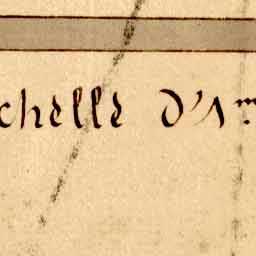 chelle D'1m